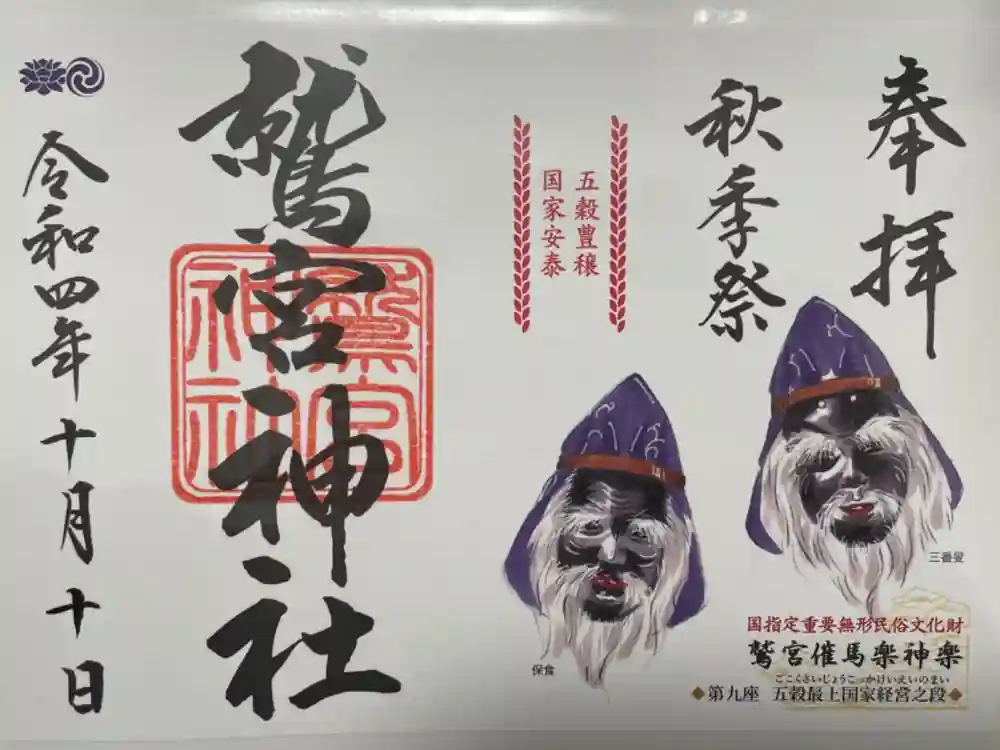 奉拝
秋季祭
五穀豊穣
国家安泰
三番叟
保食
国指定重要無形民俗文化財
鷲宮催馬楽神楽
ごこくさいじょうこっかけいえいのまい
◆第九座 五穀最上国家経営之段◆
鷲宮神社
鷲宮
神社
令和四年十月十日